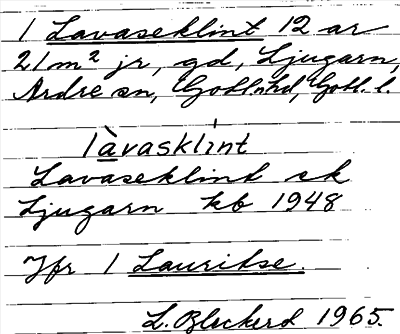 1 Lavaseklint 12 ar
21 m² jr, gd, Ljugarn,
Ardre sn, Gotl.hd, Gotl. l.
làvasklint
Lavaseklint ek
Ljugarn kb 1948
Jfr 1 Lauritse.
L. Blockerd 1965.